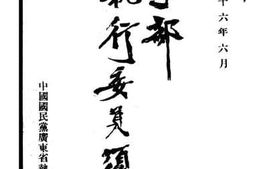 十六年六月
部
執行委員
中國國民黨廣東省執